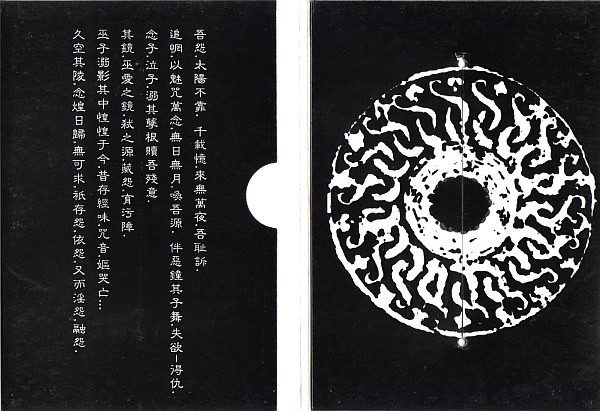 吾怨.太陽不靠. 千載憶.來無萬夜.吾耻訴.
追惘.以魅咒萬念.無日無月.喚吾源. 伴惡鐘其子舞.失欲–得仇.
念子.泣子.溺其孽根贖吾殘意.
其鏡.巫愛之鏡.弒之源.藏怨.育污陣.
巫子溺影其中惶惶于今.昔存經味.咒音.嫗哭亡…
久空其陵.念煌日歸.無可求.祇存怨.依怨.又而淫怨.融怨.